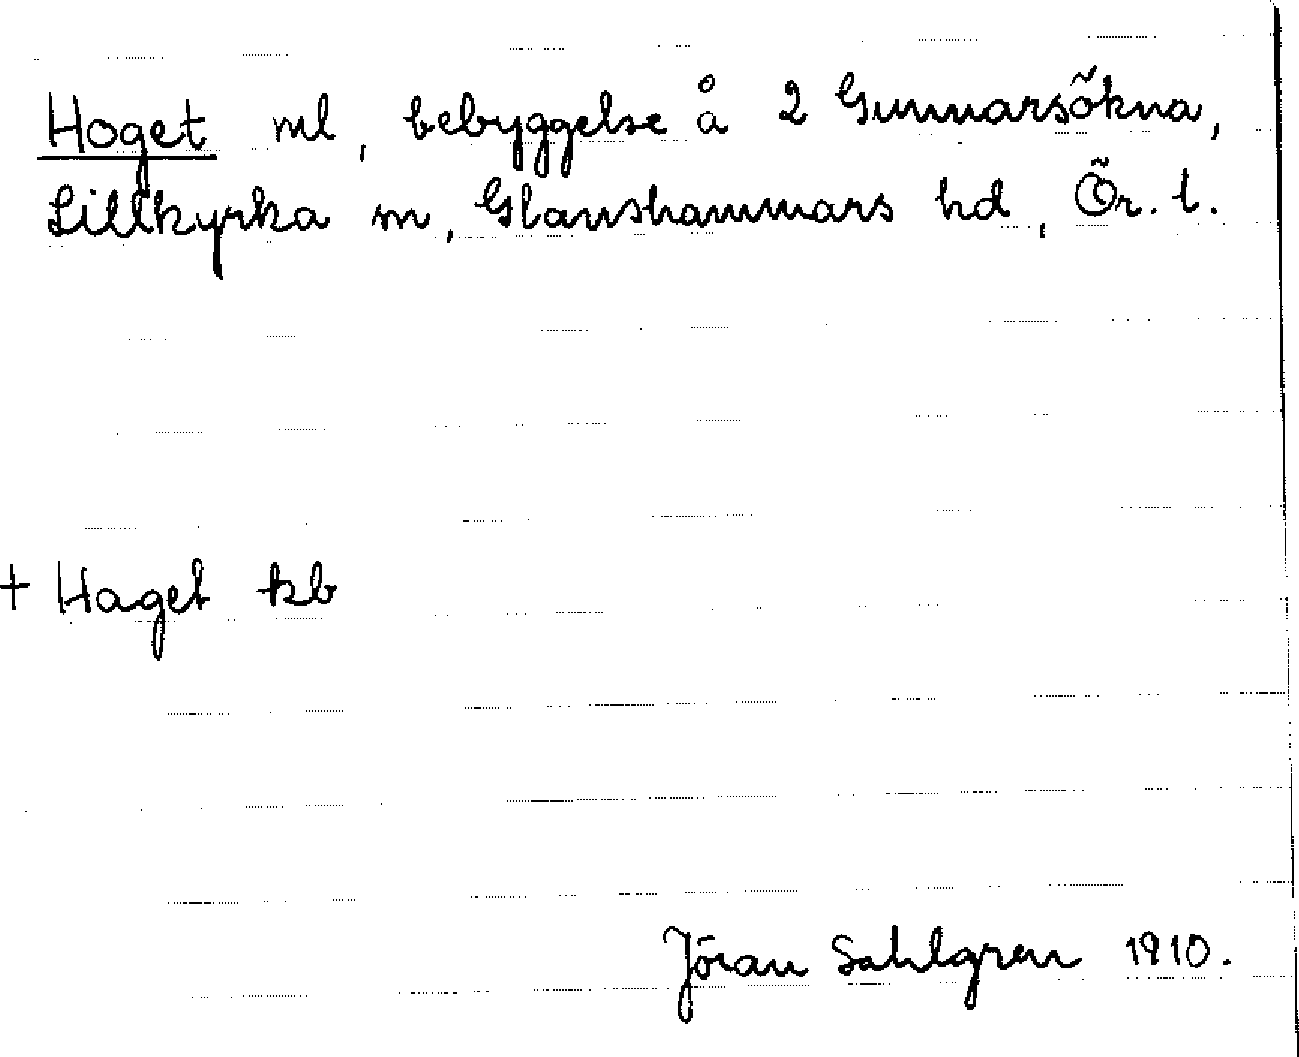 Hoget ml, bebyggelse å 2 Gunnarsökna,
Lillkyrka sn, Glanshammars hd, Ör. l.
+ Haget kb
Jöran Sahlgren 1910.